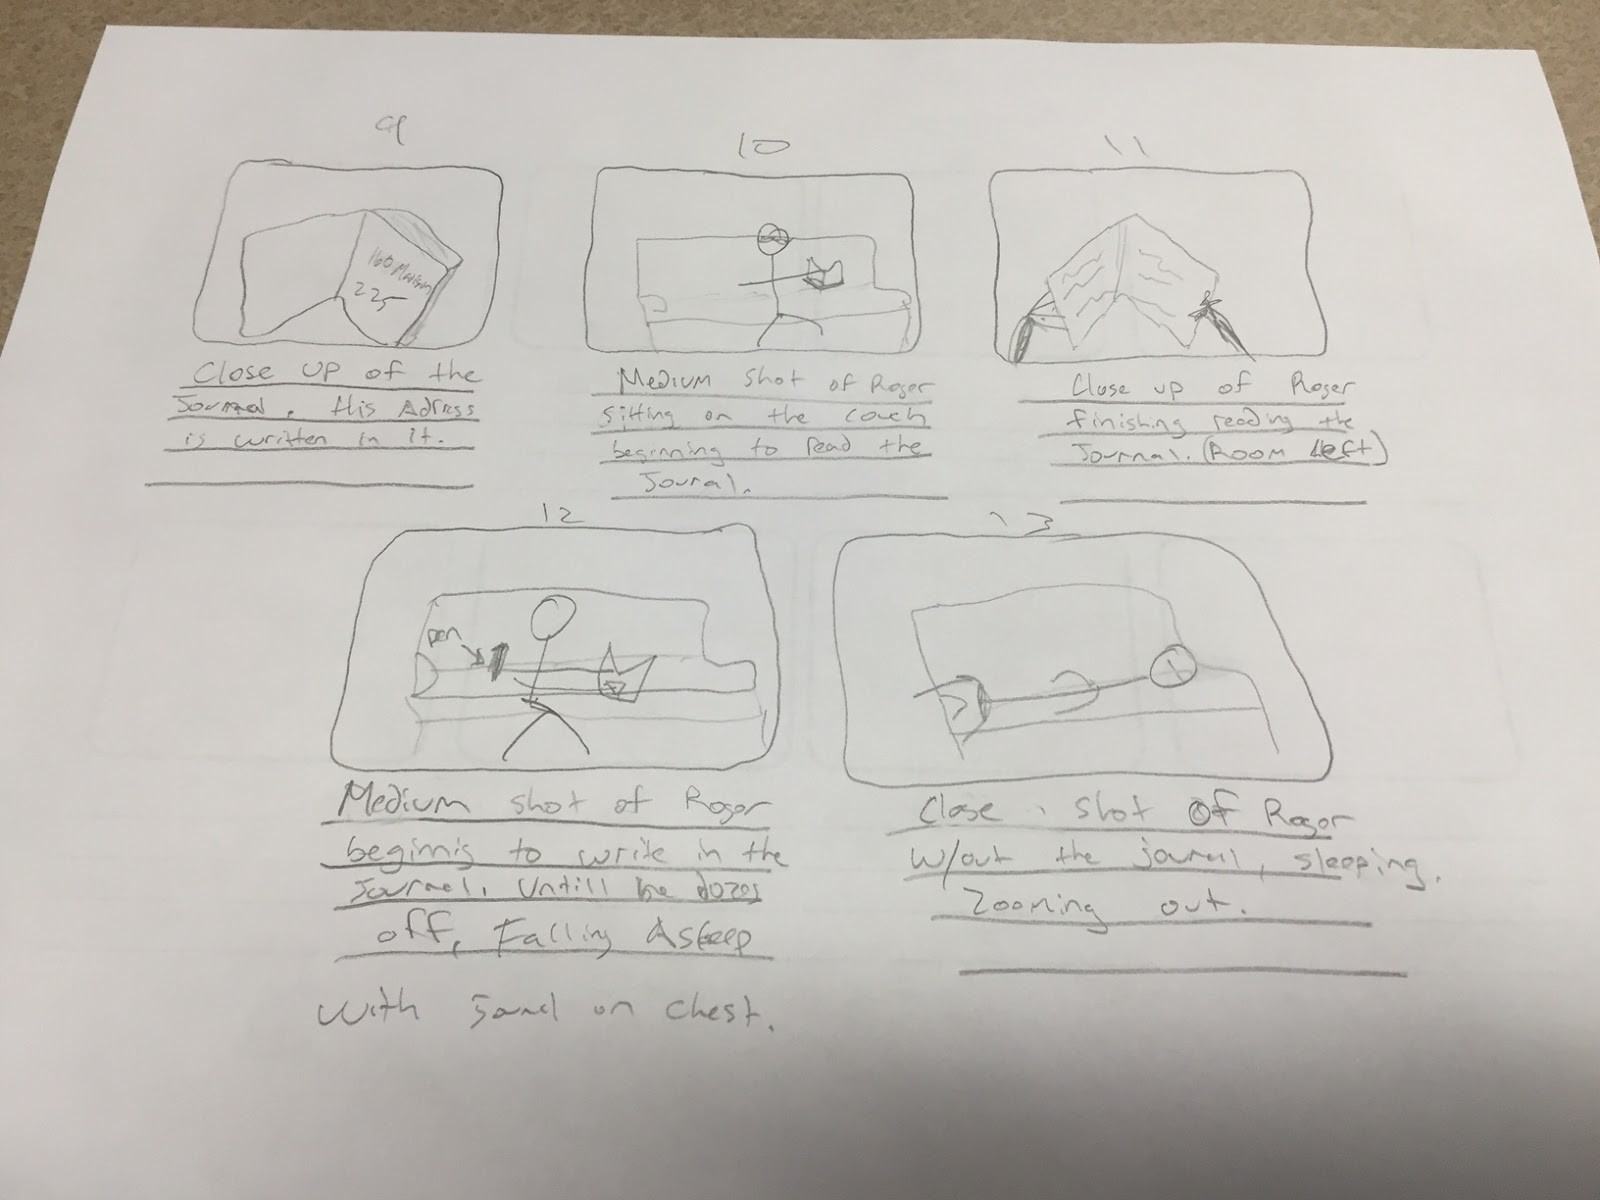 9
160 Madison
225
Close up of the
Journal. His Adress
is written in it.
10
Medium shot of Roger
sitting on the couch
beginning to read the
Joural.
11
Close up of Roger
finishing reading the
Journal. (Room Left)
12
pen
Medium shot of Roger
beginnig to write in the
Journel. Untill he dozes
off, Falling Asleep
with Jounel on chest.
13
Close shot of Roger
w/out the journl, sleeping.
Zooming out.